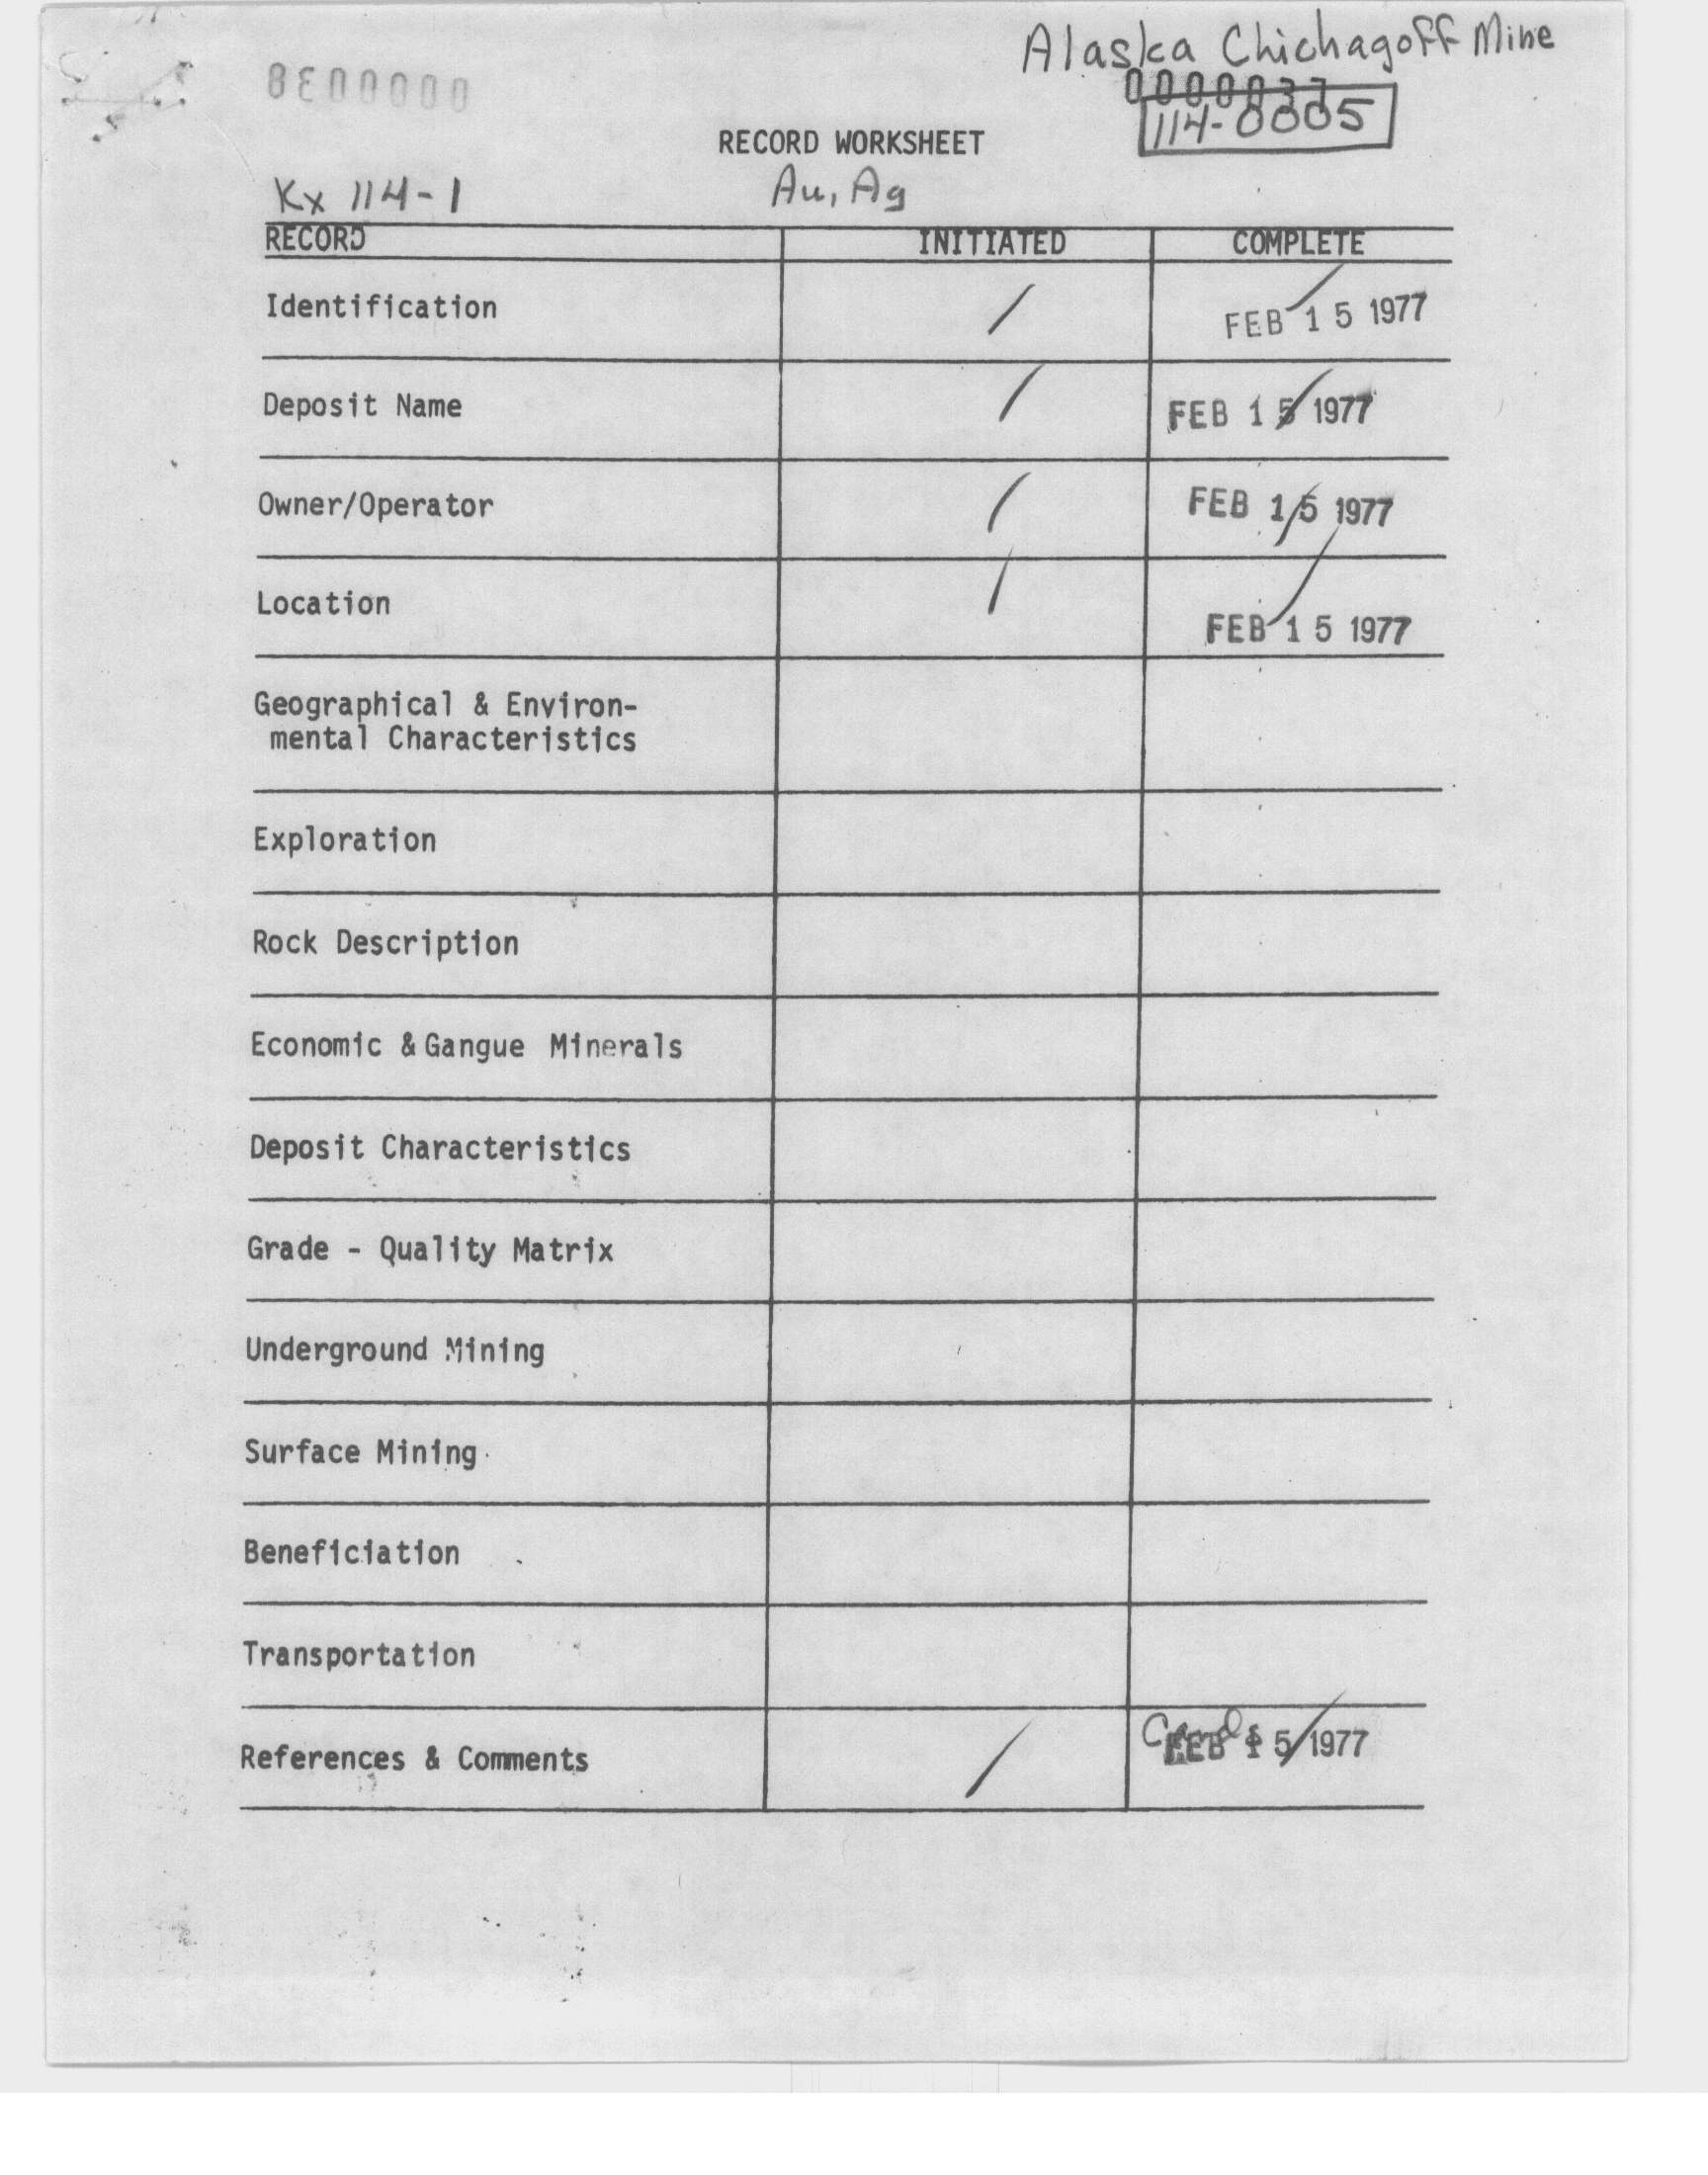 Alaska Chichagoff Mine
0000038
114-0005
RECORD WORKSHEET
Kx 114-1 Au, Ag
RECORD INITIATED COMPLETE
Identification / FEB 15 1977
Deposit Name / FEB 15 1977
Owner/Operator / FEB 15 1977
Location / FEB 15 1977
Geographical & Environ-
mental Characteristics
Exploration
Rock Description
Economic & Gangue Minerals
Deposit Characteristics
Grade - Quality Matrix
Underground Mining
Surface Mining
Beneficiation
Transportation
References & Comments / FEB 15 1977